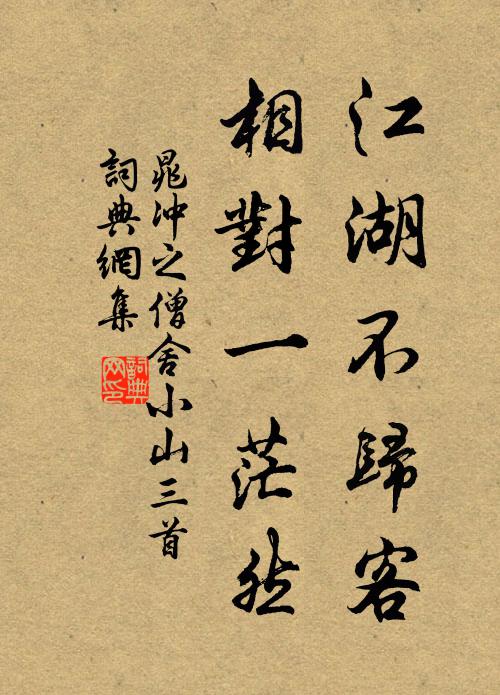 江湖不歸客
相對一茫然
晁沖之僧舍小山三首
詞典網集
詞典網印